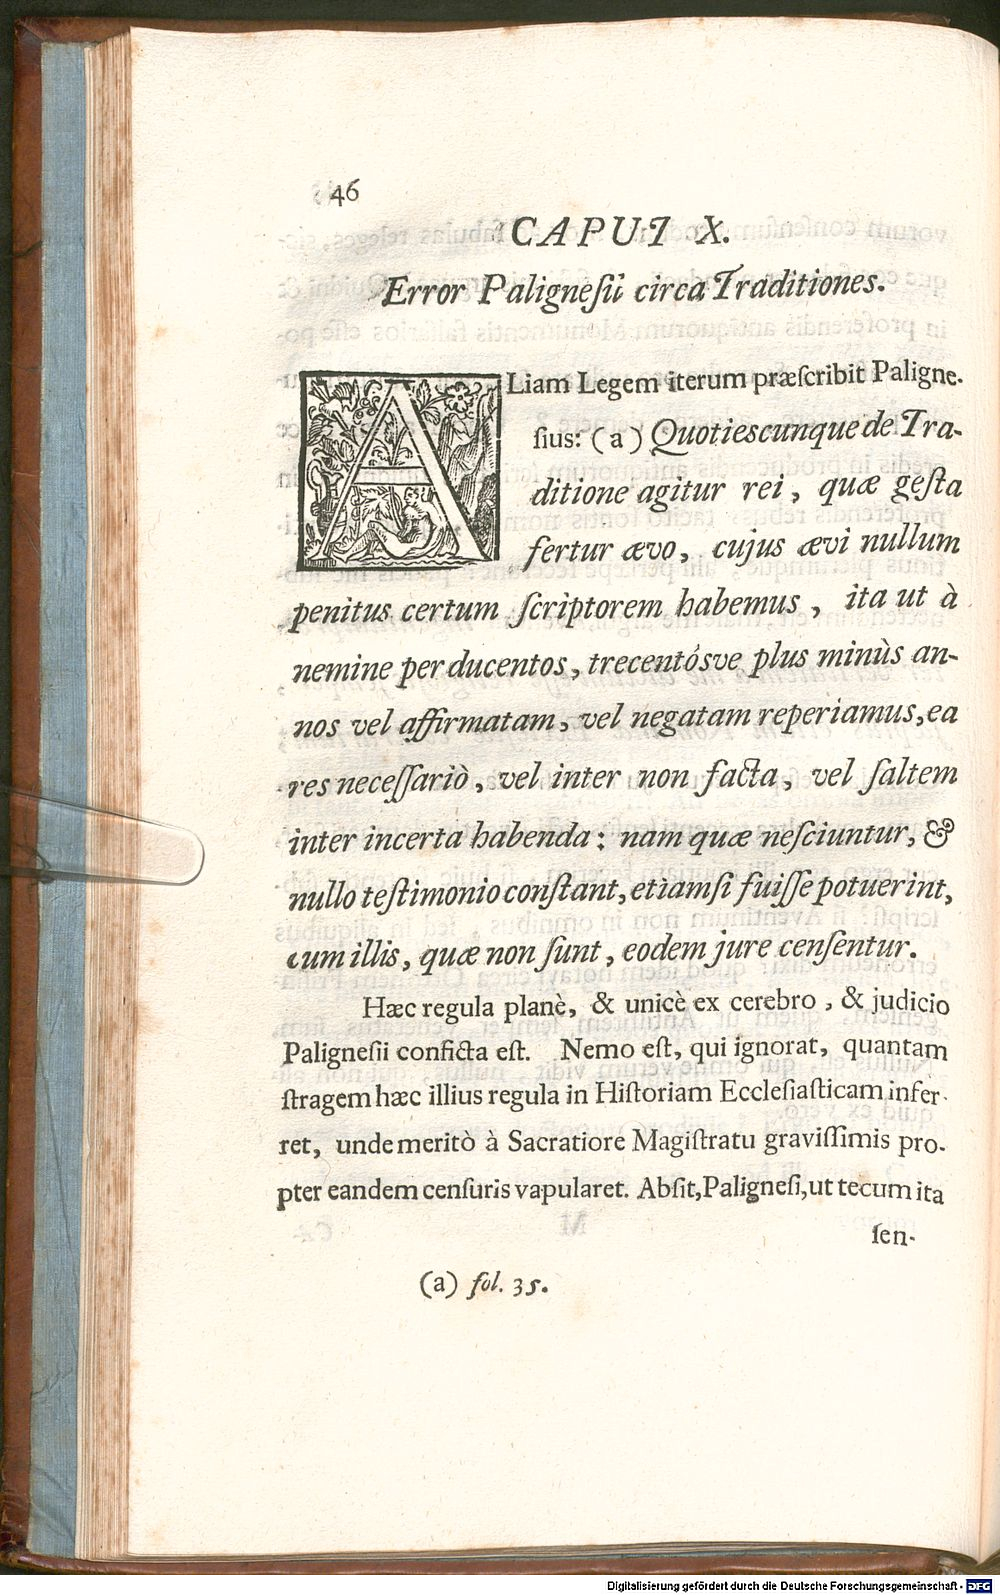 46
CAPUT X.
Error Palignesii circa Traditiones.
ALiam Legem iterum præscribit Paligne-
sius: (a) Quotiescunque de Tra-
ditione agitur rei, quæ gesta
fertur ævo, cujus ævi nullum
penitus certum scriptorem habemus, ita ut à
nemine per ducentos, trecentósve plus minùs an-
nos vel affirmatam, vel negatam reperiamus, ea
res necessariò, vel inter non facta, vel saltem
inter incerta habenda: nam quæ nesciuntur, &
nullo testimonio constant, etiamsi fuisse potuerint,
cum illis, quæ non sunt, eodem jure censentur.
Hæc regula planè, & unicè ex cerebro, & judicio
Palignesii conficta est. Nemo est, qui ignorat, quantam
stragem hæc illius regula in Historiam Ecclesiasticam infer-
ret, unde meritò à Sacratiore Magistratu gravissimis pro-
pter eandem censuris vapularet. Absit, Palignesi, ut tecum ita
sen-
(a) fol. 35.
Digitalisierung gefördert durch die Deutsche Forschungsgemeinschaft - DFG